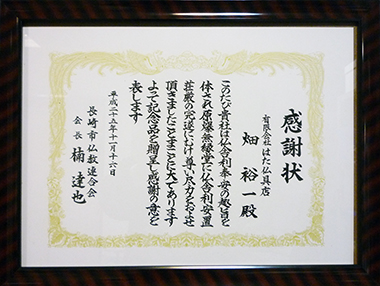 感謝状
有限会社 はた仏具店
畑 裕一殿
このたび貴社は仏舎利奉安の趣旨を
体され原爆無縁堂に仏舎利安置
荘厳の完遂にむけ尊い尽力をおよせ
頂きましたことまことに大であります
よって記念品を贈呈し感謝の意を
表します
平成二十三年十一月十六日
長崎市仏教連合会
会長 楠 達也